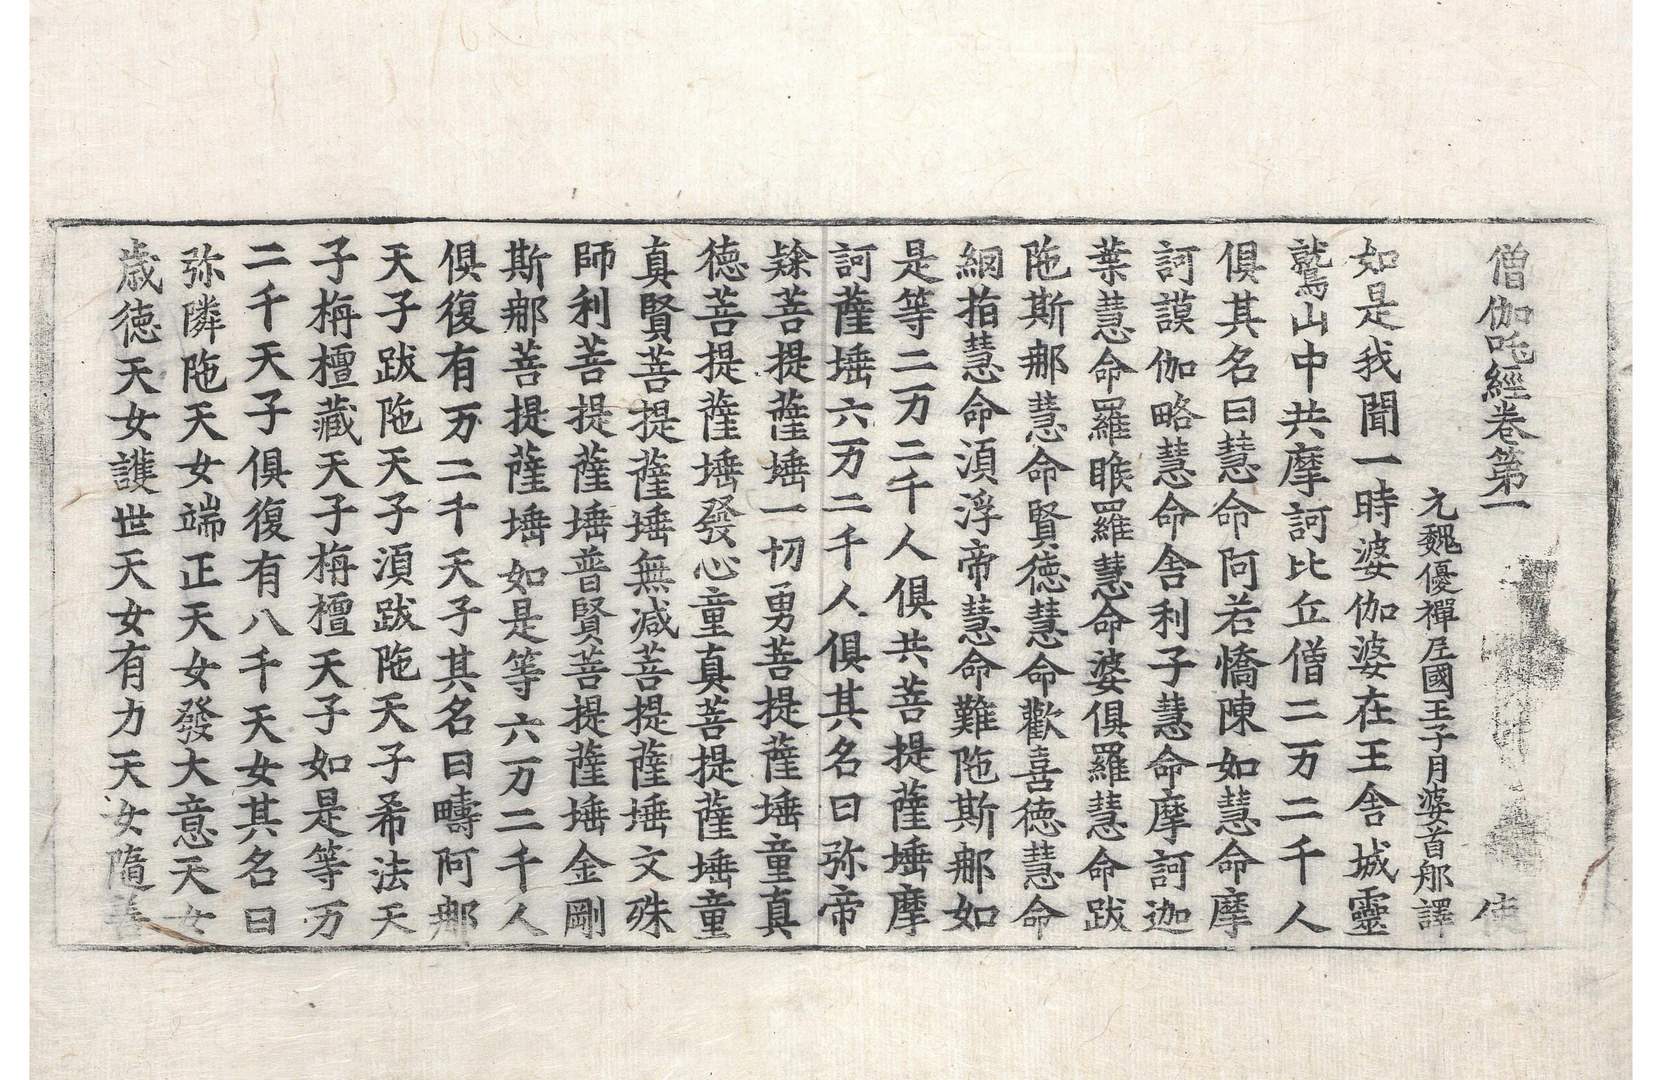 僧伽吒經卷第一　使
元魏優禪尼國王子月婆首那譯
如是我聞一時婆伽婆在王舍城靈
鷲山中共摩訶比丘僧二万二千人
俱其名曰慧命阿若憍陳如慧命摩
訶謨伽略慧命舍利子慧命摩訶迦
葉慧命羅睺羅慧命婆俱羅慧命跋
陁斯那慧命賢德慧命歡喜德慧命
網指慧命湏浮帝慧命難陁斯那如
是等二万二千人俱共菩提薩埵摩
訶薩埵六万二千人俱其名曰弥帝
隸菩提薩埵一切勇菩提薩埵童真
德菩提薩埵發心童真菩提薩埵童
真賢菩提薩埵無减菩提薩埵文殊
師利菩提薩埵普賢菩提薩埵金剛
斯那菩提薩埵如是等六万二千人
俱復有万二千天子其名曰疇阿那
天子跋陁天子湏跋陁天子希法天
子栴檀藏天子栴檀天子如是等万
二千天子俱復有八千天女其名曰
弥隣陁天女端正天女發大意天女
歲德天女護世天女有力天女隨善